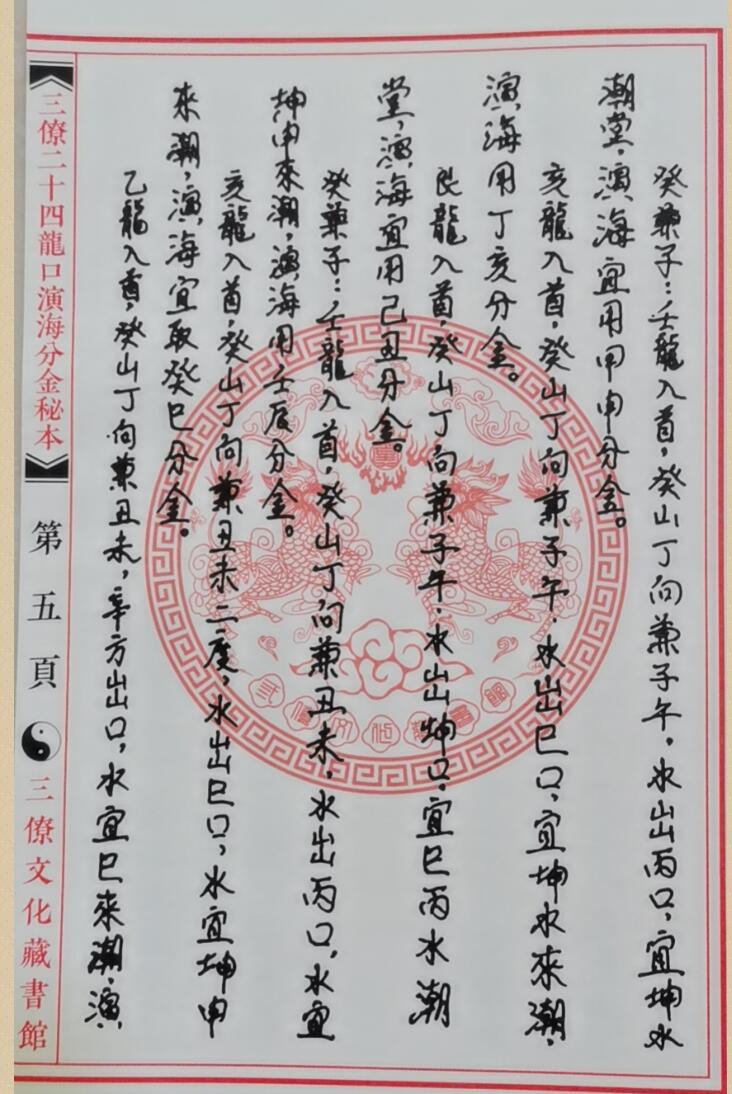 癸兼子:壬龍入首,癸山丁向兼子午。水出丙口,宜坤水
潮堂,演海宜用甲申分金。
亥龍入首,癸山丁向兼子午。水出巳口,宜坤水來潮,
演海用丁亥分金。
艮龍入首,癸山丁向兼子午。水出坤口,宜巳丙水潮
堂,演海宜用己丑分金。
癸兼子:壬龍入首,癸山丁向兼丑未,水出丙口,水宜
坤申來潮,演海用壬辰分金。
亥龍入首,癸山丁向兼丑未二度,水出巳口,水宜坤申
來潮,演海宜取癸巳分金。
乙龍入首,癸山丁向兼丑未,辛方出口,水宜巳來潮,演
三僚二十四龍口演海分金秘本
第五頁
三僚文化藏書館
三僚文化藏書館